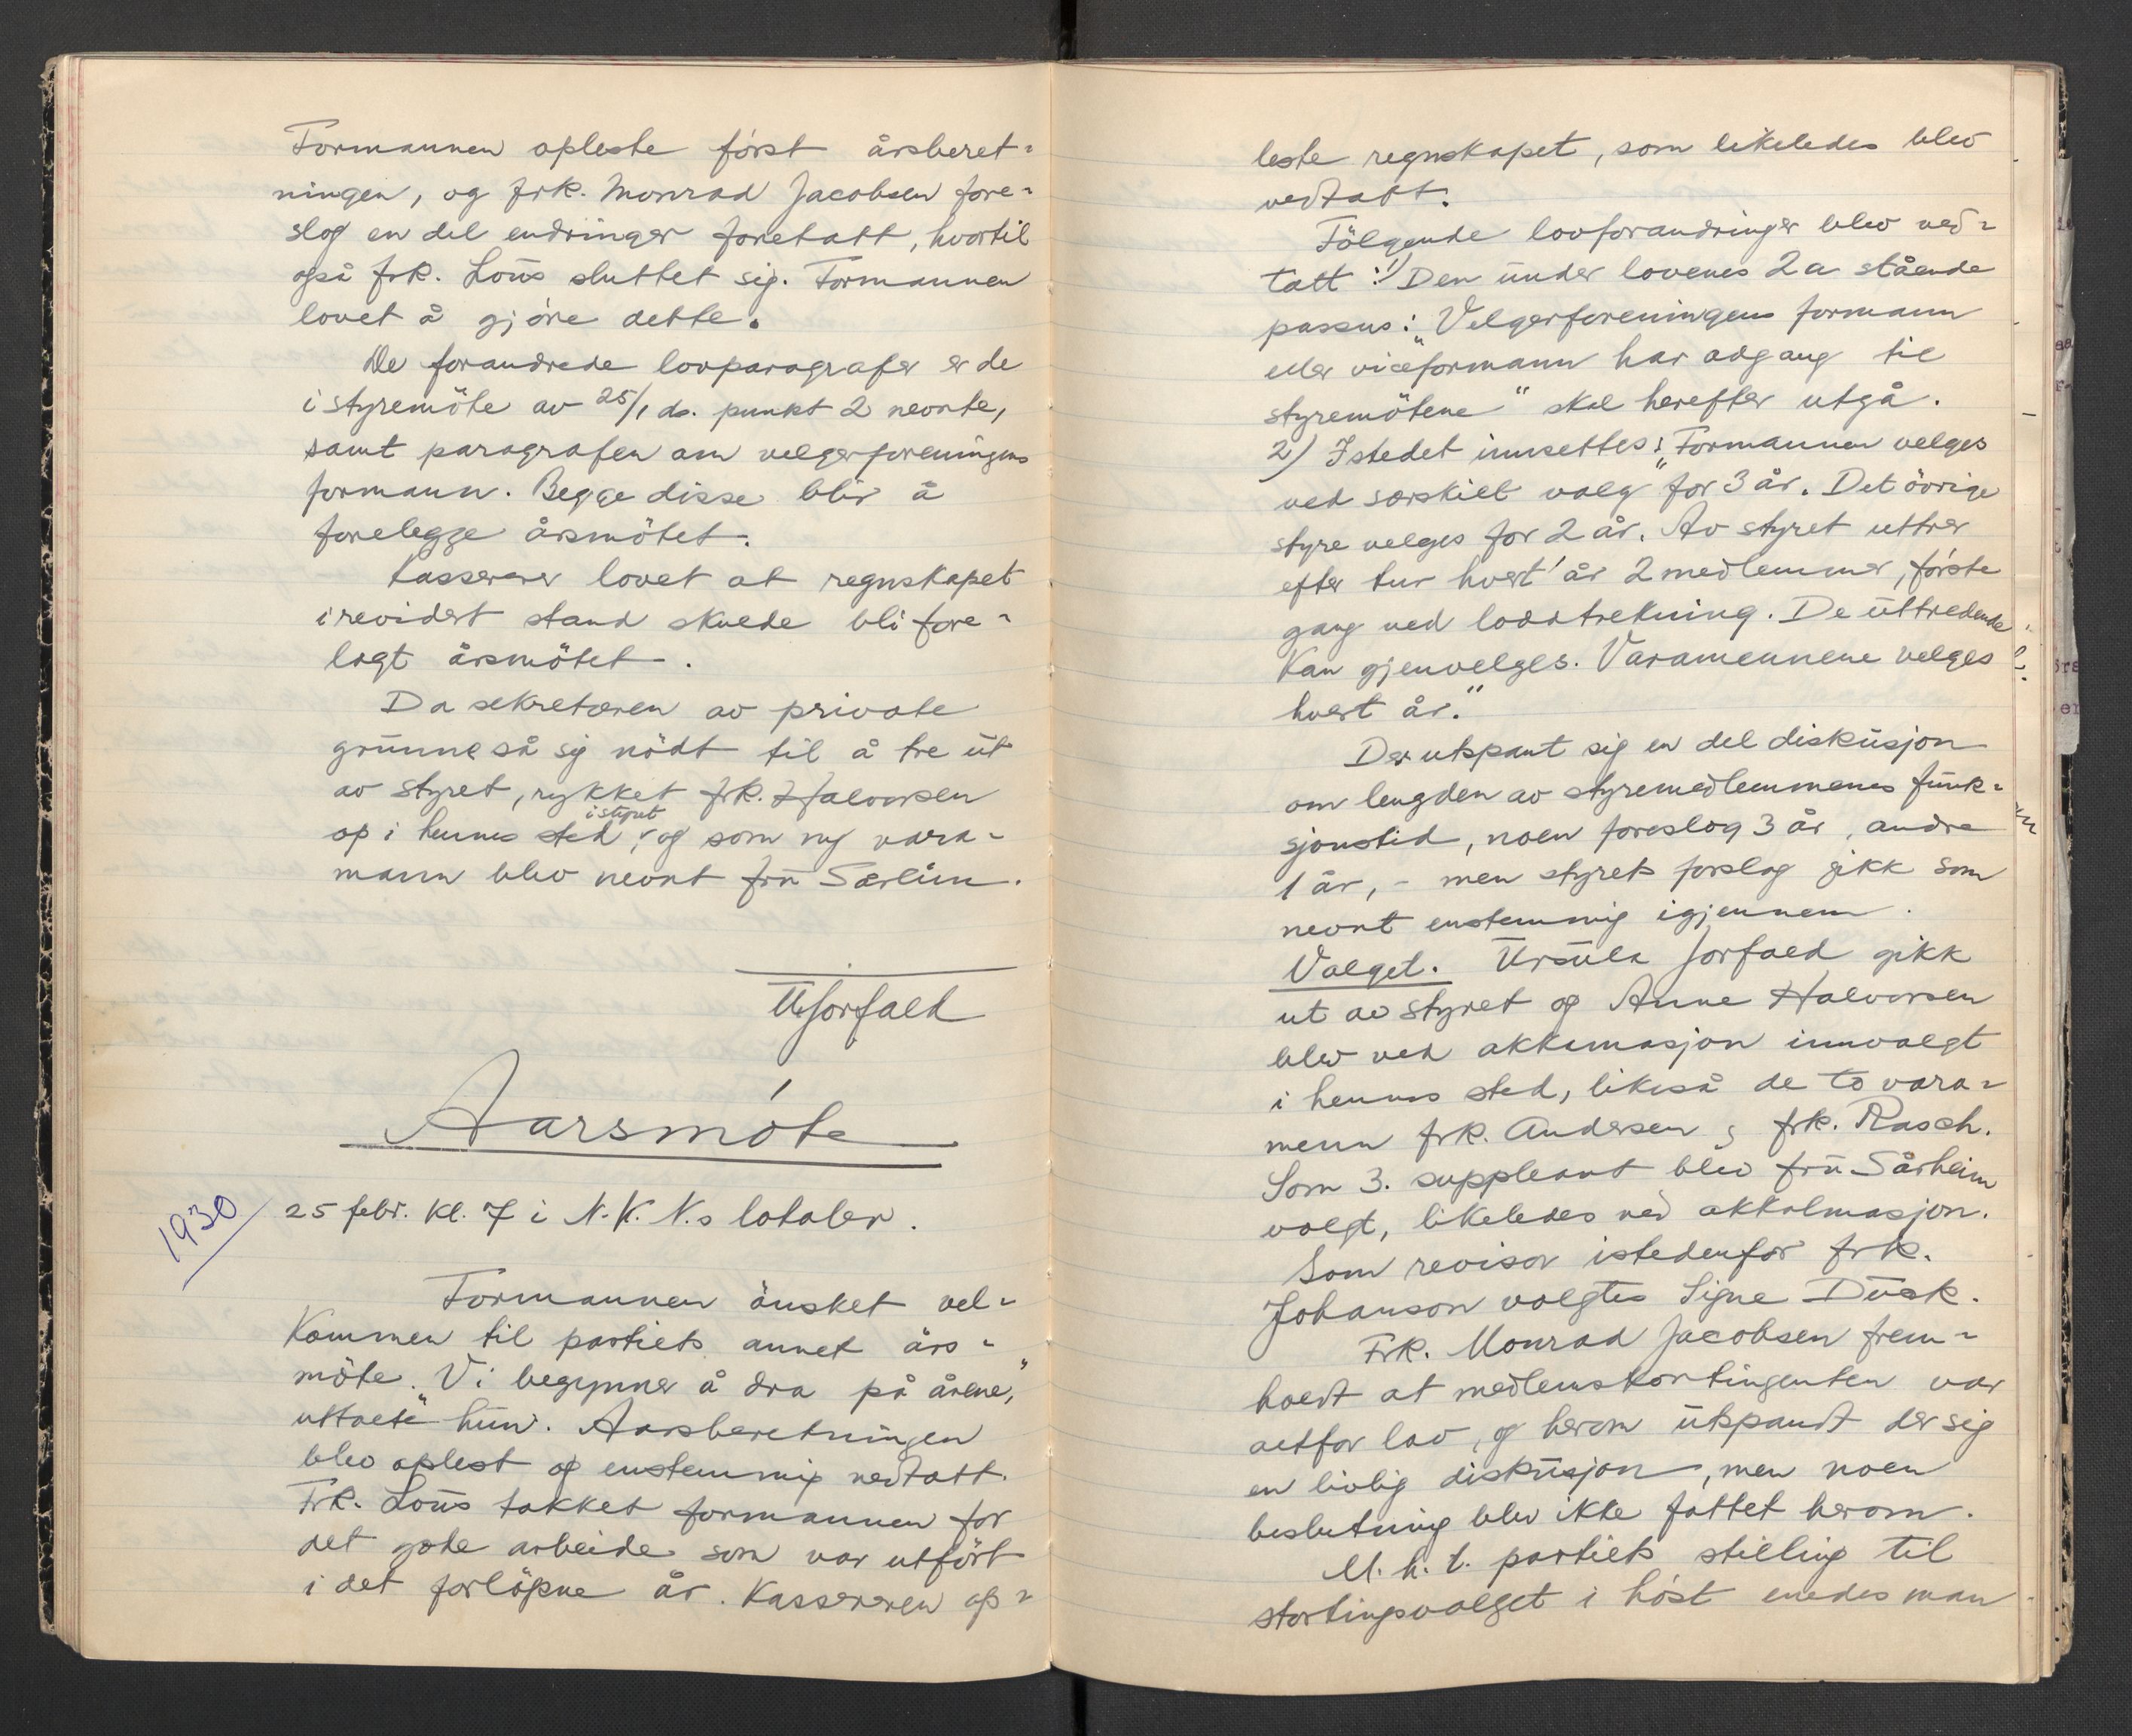 Formannen opleste först årsberet-
ningen, og frk. Monrad Jacobsen fore-
slog en del endringer foretatt, hvortil
også frk. Loüs sluttet sig. Formannen
lovet å gjöre dette.
De forandrede lovparagrafer er de
i styremöte av 25/1 ds. punkt 2 nevnte,
samt paragrafen om velgerforeningens
formann. Begge disse blir å
forelegge årsmötet.
Kasserer lovet at regnskapet
i revidert stand skulde bli fore-
lagt årsmötet.
Da sekretæren av private
grunne så sig nödt til å tre ut
av styret, rykket frk. Halvorsen
op i hennes sted i styret, og som ny vara-
mann blev nevnt fru Særlim.
U Jorfald
Aarsmöte
1930
25 febr. kl. 7 i N.K.N.s lokaler.
Formannen önsket vel-
kommen til partiets annet års-
möte. "Vi begynner å dra på årene,"
uttalte hun. Aarsberetningen
blev oplest og enstemmig vedtatt.
Frk. Loüs takket formannen for
det gode arbeide som var utfört
i det forlöpne år. Kassereren op-
leste regnskapet, som likeledes blev
vedtatt.
Fölgende lovforandringer blev ved-
tatt: 1) Den under lovenes 2a stående
passus: "Velgerforeningens formann
eller viceformann har adgang til
styremötene" skal herefter utgå.
2) Istedet innsettes: "Formannen velges
ved særskilt valg for 3 år. Det övrige
styre velges for 2 år. Av styret uttrer
efter tur hvert år 2 medlemmer, förste
gang ved loddtrekning. De uttredende
kan gjenvelges. Varamennene velges
hvert år."
Der utspant sig en del diskusjon
om lengden av styremedlemmenes funk-
sjonstid, noen foreslog 3 år, andre
1 år, - men styrets forslag gikk som
nevnt enstemmig igjennem.
Valget. Ursula Jorfald gikk
ut av styret og Anne Halvorsen
blev ved akklamasjon innvalgt
i hennes sted, likeså de to vara-
menn frk. Andersen og frk. Rasch.
Som 3. suppleant blev fru Sårheim
valgt, likeledes ved akkalmasjon.
Som revisor istedenfor frk.
Johanson valgtes Signe Düsk.
Frk. Monrad Jacobsen frem-
holdt at medlemskontingenten var
altfor lav, og herom utspandt der sig
en livlig diskusjon, men noen
beslutning blev ikke fattet herom.
M.h.t. partiets stilling til
stortingsvalget i höst enedes man